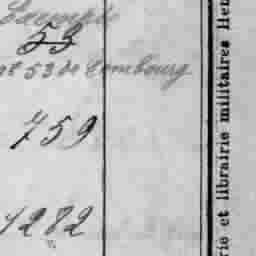 Exempté
53
nt 53 de Combourg
759
1282
rie et librairie militaires Hen